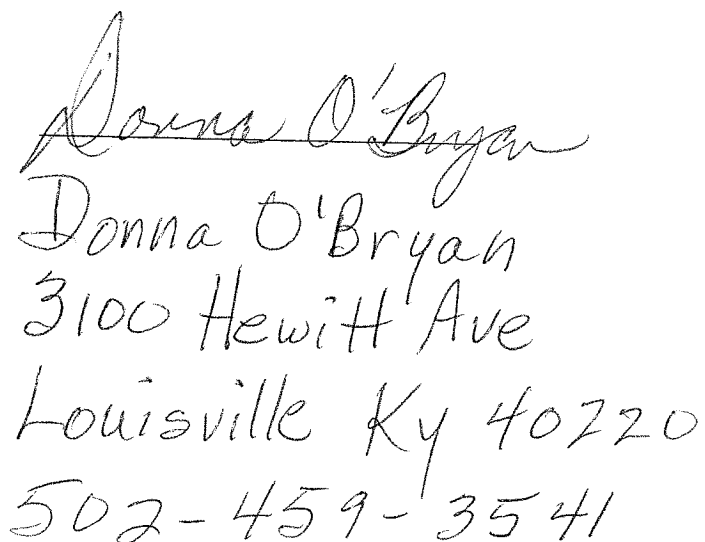 Donna O'Bryan
Donna O'Bryan
3100 Hewitt Ave
Louisville Ky 40220
502-459-3541